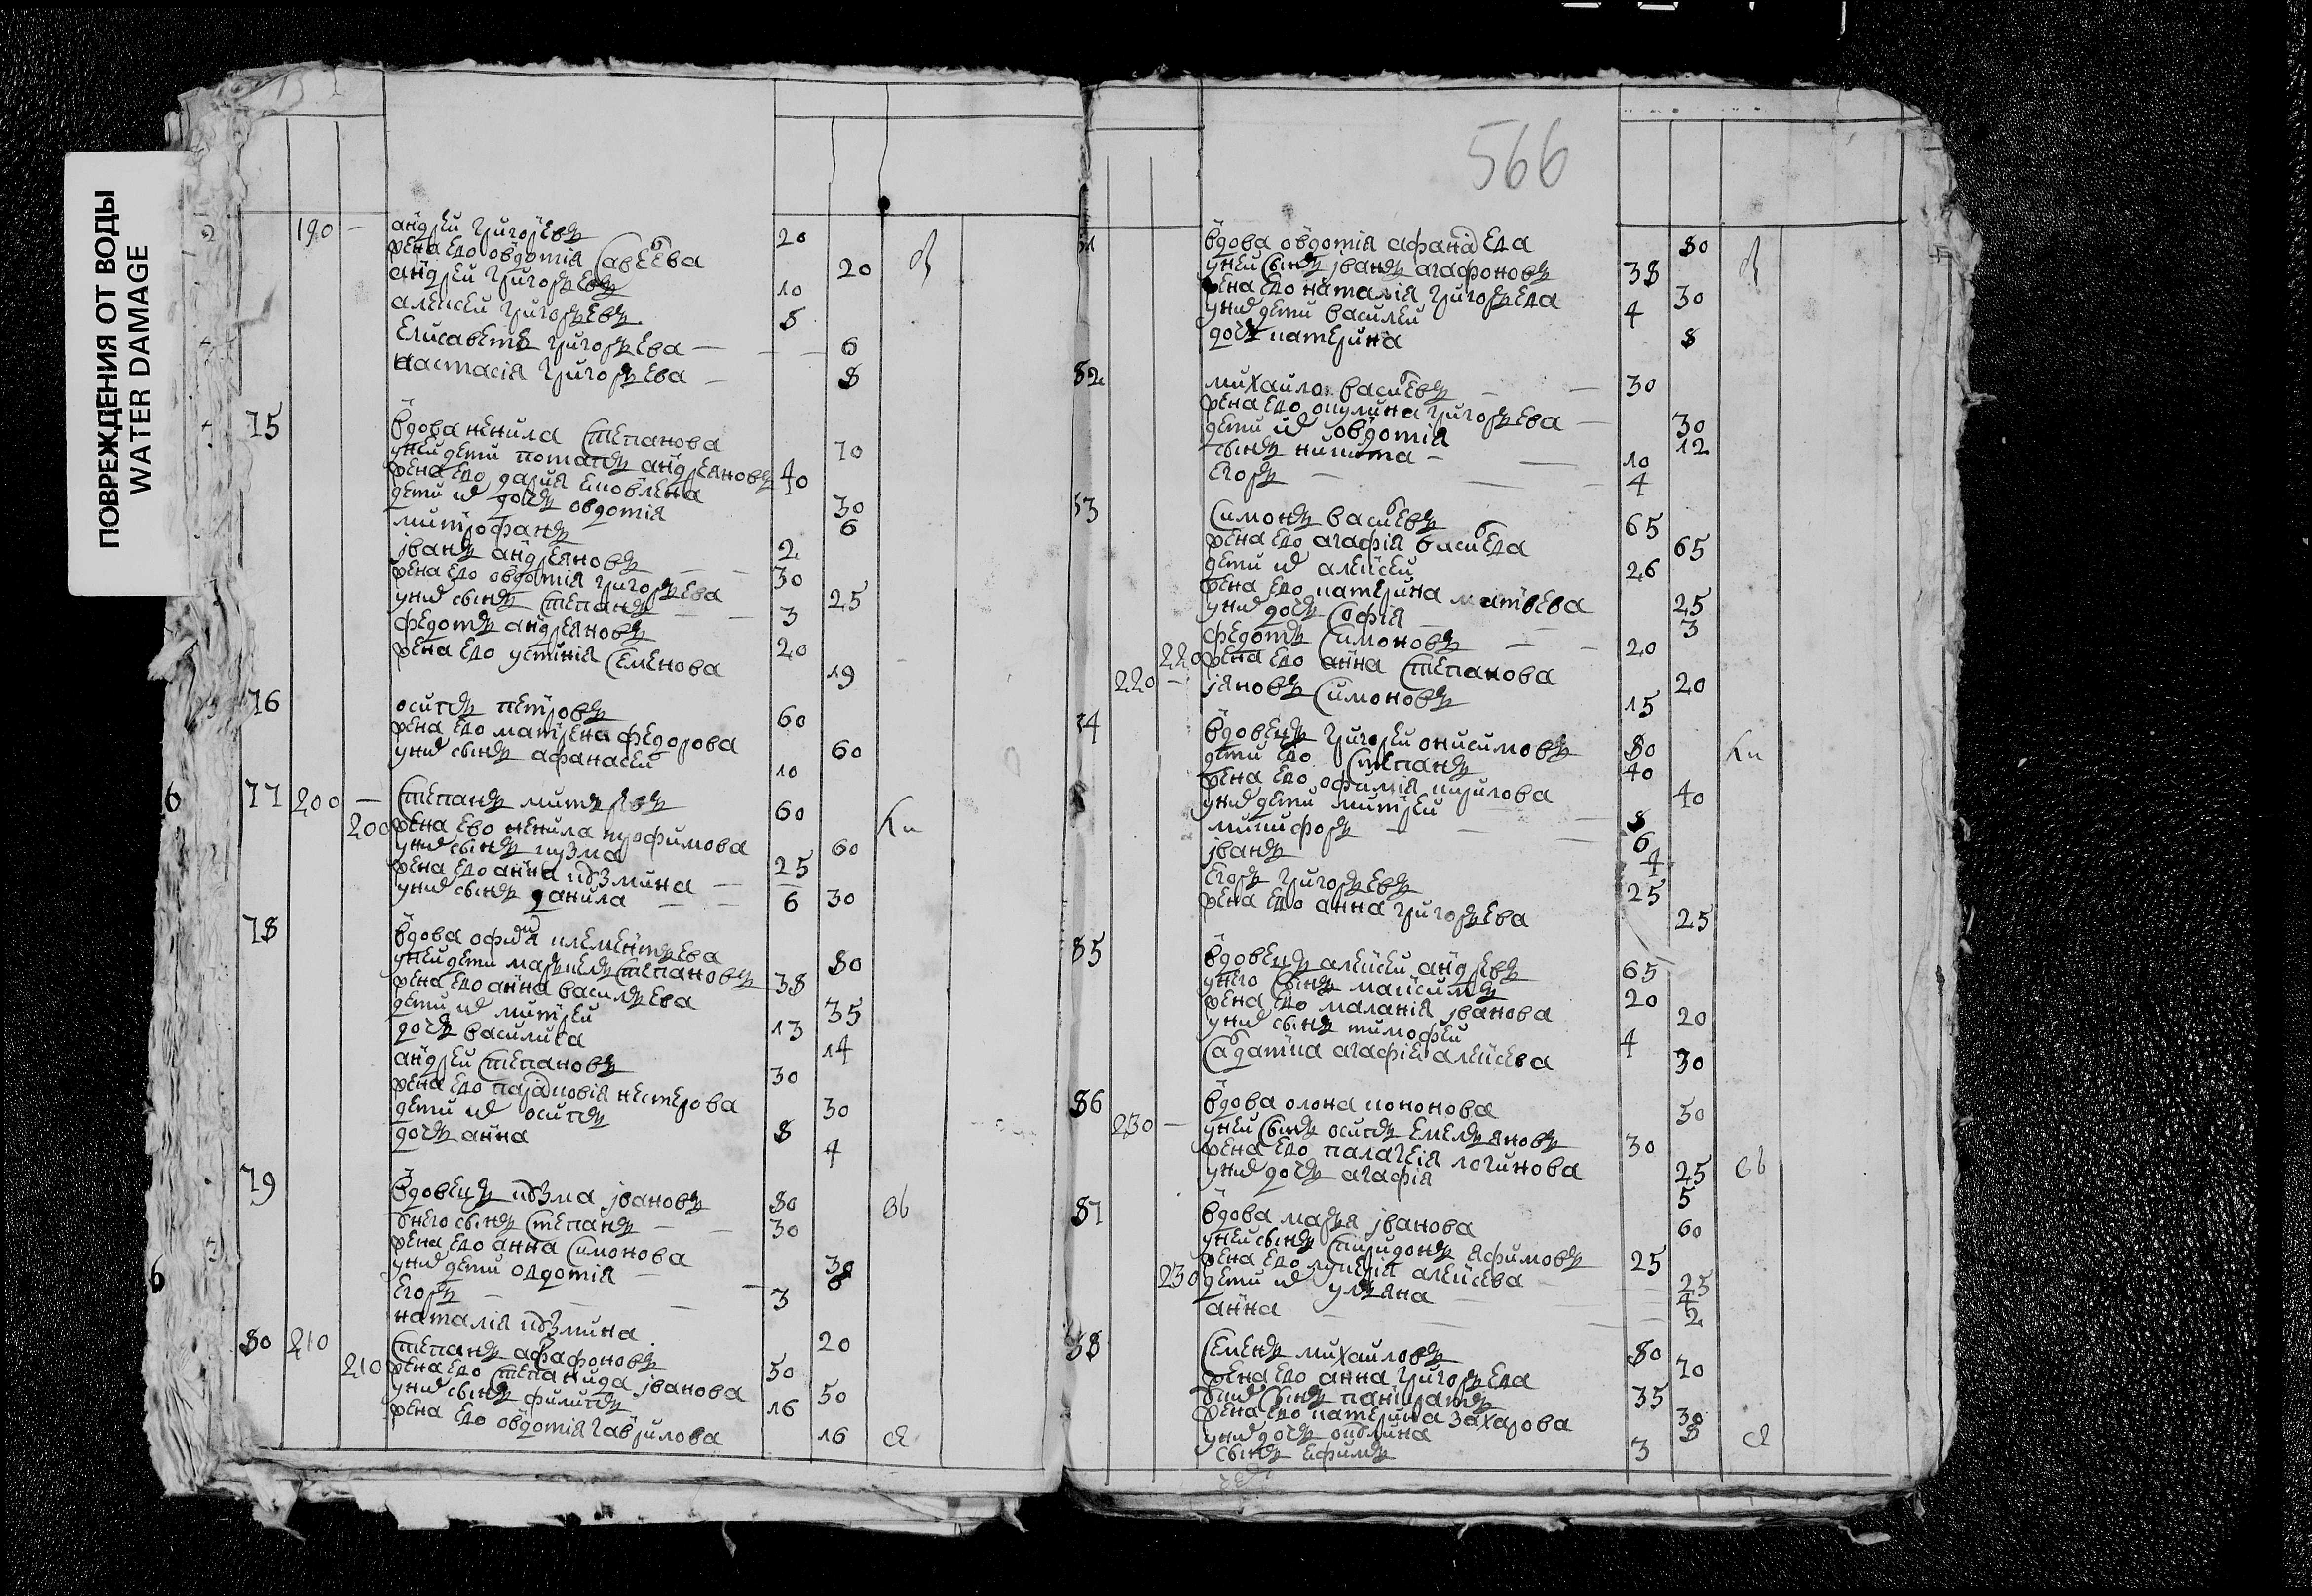 ПОВРЕЖДЕНИЯ ОТ ВОДЫ
WATER DAMAGE
190 — андреи григорьевъ 20
жена ево овдотия савеева 20
андреи григорьевъ 10
алексеи григорьевъ 8
елисаветъ григорьева — 6
настасия григорьева — 8
75 вдова ненила степанова 70
унеи дети потапъ андреяновъ 40
жена ево дария яковлева 30
дети их дочь овдотия 6
митрофанъ 2
иванъ андреяновъ 30
жена ево овдотия григорьева 25
уних сынъ степанъ 3
федотъ андреяновъ 20
жена ево устиния семенова 19
76 осипъ петровъ 60
жена ево матрена федорова 60
уних сынъ афанасеи 10
77 200 — степанъ 60
200 жена ево ненила трофимова 60
уних сынъ кузма 25
жена ево анна кузмина — 30
уних сынъ данила 6
78 вдова клементьева 80
унеи дети степановъ 38
жена ево анна васильева 35
дети их митреи 13
дочь василиса 14
андреи степановъ 30
жена ево парасковия нестерова 30
дети их осипъ 8
дочь анна 4
79 вдовецъ кузма ивановъ 80
унего сынъ степанъ 30
жена ево анна симонова 30
уних дети овдотия 8
егоръ 3
наталия кузмина 20
80 210 степанъ 50
210 жена ево степанида иванова 50
уних сынъ филипъ 16
жена ево овдотия гаврилова 16
566
81 вдова овдотия афанасева 80
унеи сынъ иванъ агафоновъ 38
жена ево наталия григорьева 30
уних дети василеи 4
дочь катерина 8
82 михаило васиевъ 30
жена ево окулина григорьева 30
дети их овдотия 12
сынъ никита 10
егоръ 4
83 симонъ васиевъ 65
жена ево агафия васиева 65
дети их алексеи 26
жена ево катерина матвеева 25
уних дочь софия 3
федотъ симоновъ 20
220 жена ево анна степанова 20
220 — яковъ симоновъ 15
84 вдовецъ григореи онисимовъ 80
дети ево степанъ 40
жена ево офимия кирилова 40
уних дети митреи 8
никифоръ 6
иванъ 4
егоръ григорьевъ 25
жена ево анна григорьева 25
85 вдовецъ алексеи андреевъ 65
унего сынъ максимъ 20
жена ево малания иванова 20
уних сынъ тимофеи 4
салдатка агафия алексева 30
86 вдова олона кононова 50
230 — унеи сынъ осипъ емельяновъ 30
жена ево палагея логинова 25
уних дочь агафия 5
87 вдова марья иванова 60
унеи сынъ спиридонъ яфимовъ 25
жена ево лукерия алексева 25
230 дети их ульяна 4
анна 2
88 семенъ михаиловъ 80
жена ево анна григорьева 70
уних сынъ панкратъ 35
жена ево катерина захарова 30
уних дочь окулина 8
сынъ ефимъ 3